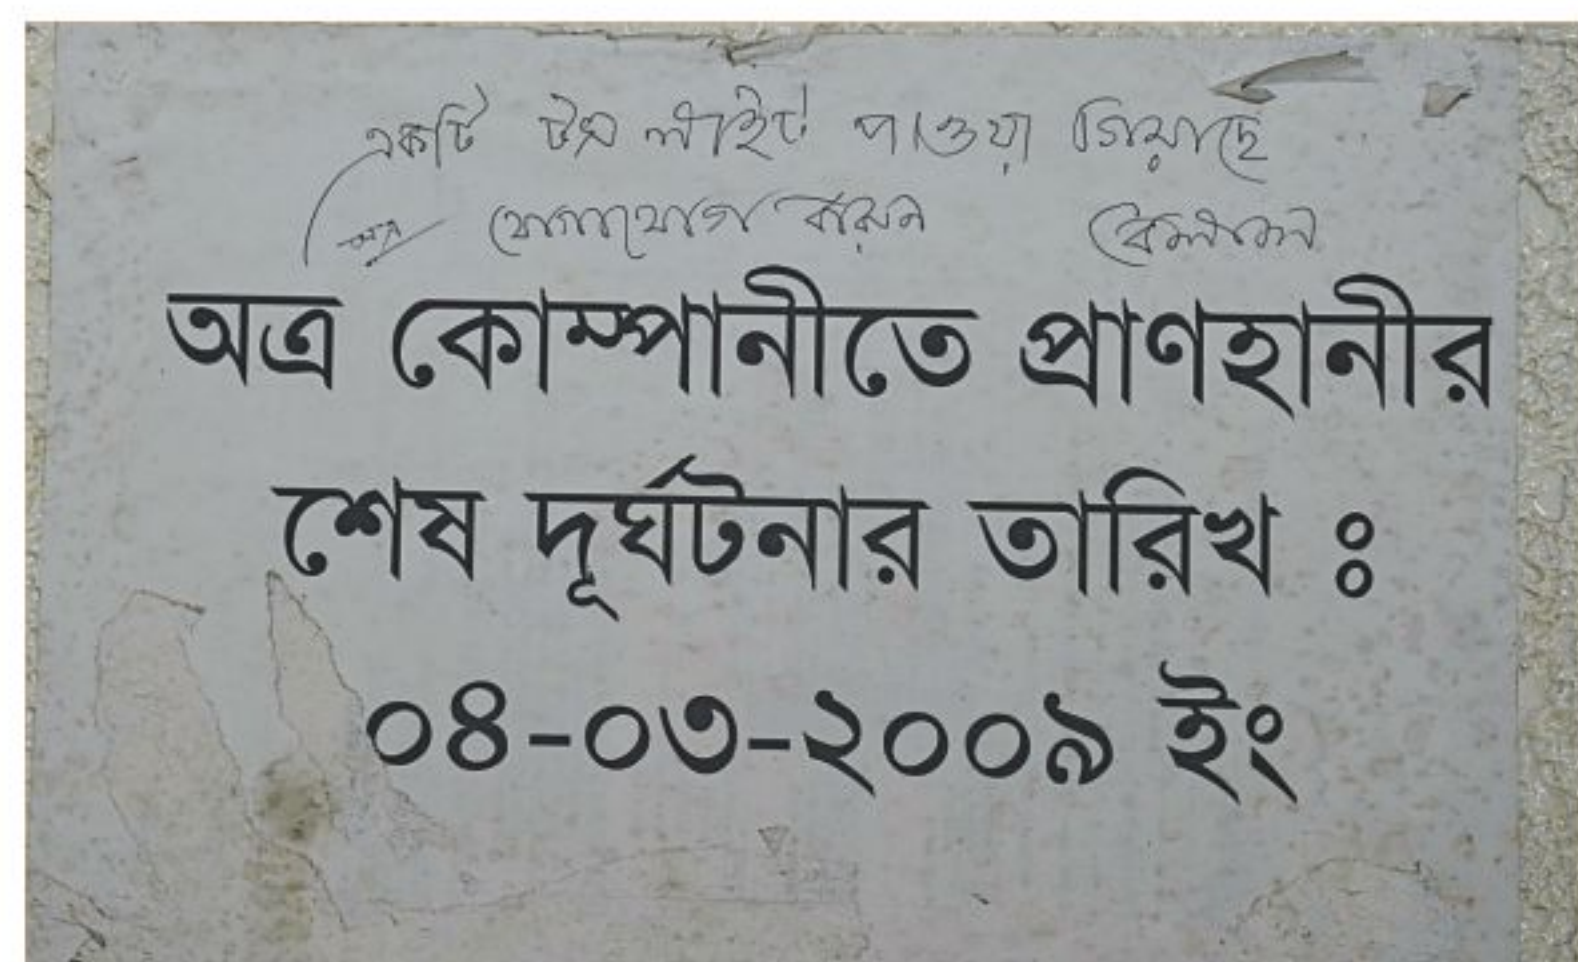 একটি টস লাইট পাওয়া গিয়াছে
যোগাযোগ করুন
অত্র কোম্পানীতে প্রাণহানীর
শেষ দূর্ঘটনার তারিখ ঃ
০৪-০৩-২০০৯ ইং